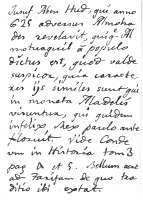 Jusuf Aben Hud, qui anno
625 adversus Almoha
des revelavit, quiq. Al
motuaquil á populo
dictus est, quod valde
suspicor, quia caracte
res iis similes sunt qui
in moneta
visuntur, qui quidem
infelix Rex paulo ante
floruit. Vide Conde
um in Historia tom 3
pag. et 5. Bellum
ad Faritam de quo tra
ditio ibi extat.